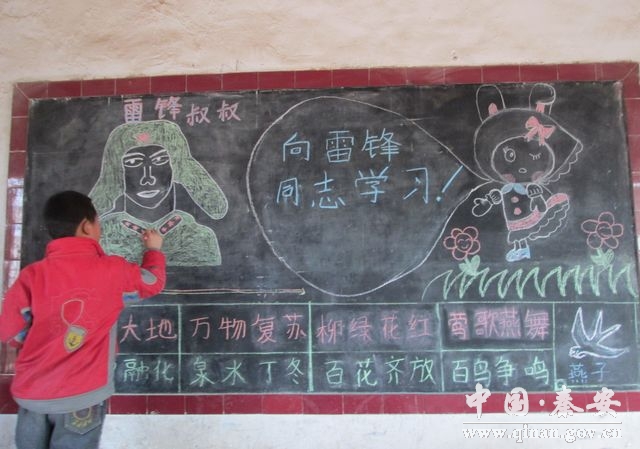 雷锋叔叔
向雷锋
同志学习!
大地 万物复苏 柳绿花红 莺歌燕舞
融化 泉水丁冬 百花齐放 百鸟争鸣 燕子
中国·秦安
www.qinan.gov.cn